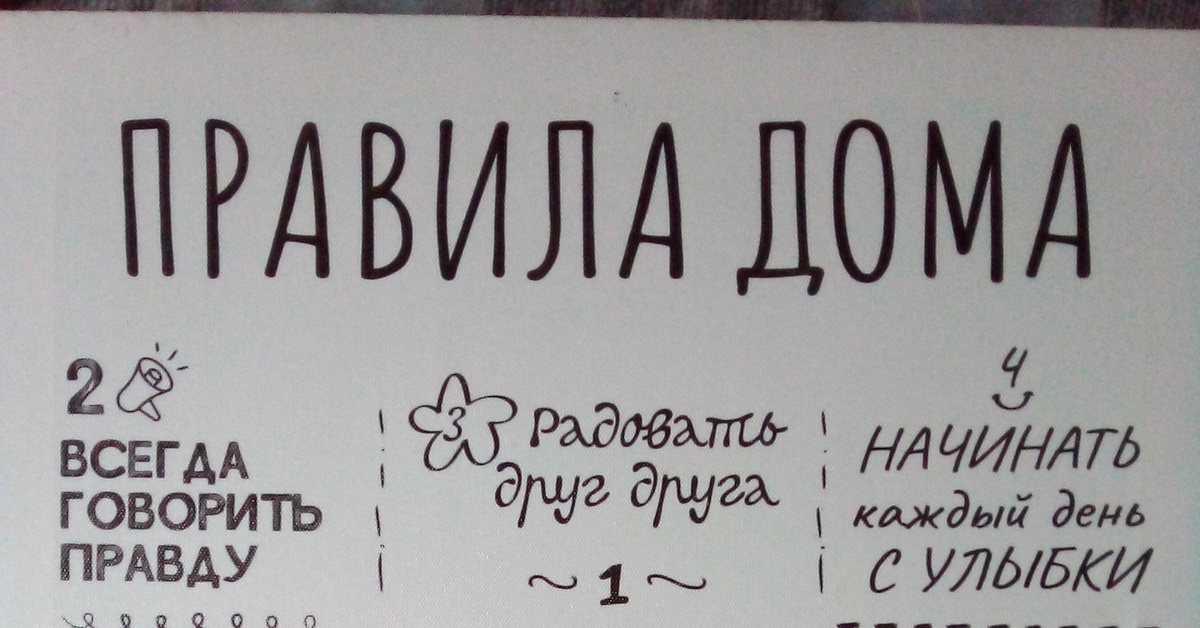 ПРАВИЛА ДОМА
2
ВСЕГДА
ГОВОРИТЬ
ПРАВДУ
3 Радовать
друг друга
~1~
4
НАЧИНАТЬ
каждый день
С УЛЫБКИ